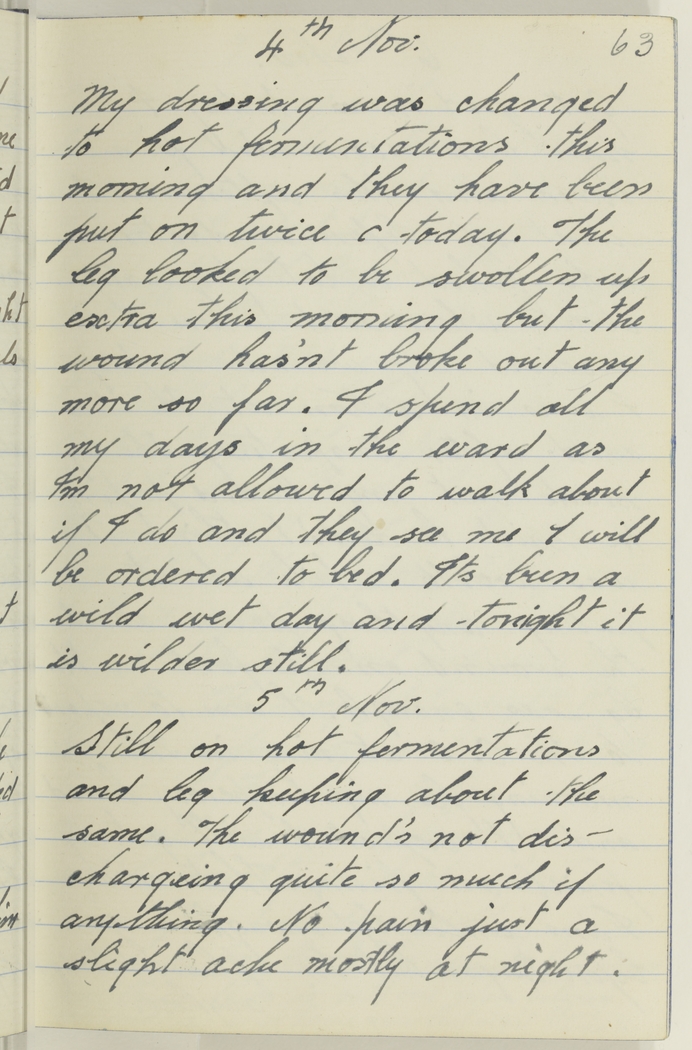 4th Nov. 63
My dressing was changed
to hot fermentations this
morning and they have been
put on twice c today. The
leg looked to be swollen up
extra this morning but the
wound has'nt broke out any
more so far. I spend all
my days in the ward as
I'm not allowed to walk about
if I do and they see me I will
be ordered to bed. Its been a
wild wet day and tonight it
is wilder still.
5th Nov.
Still on hot fermentations
and leg keeping about the
same. The wound's not dis-
chargeing quite so much if
anything. No pain just a
slight ache mostly at night.